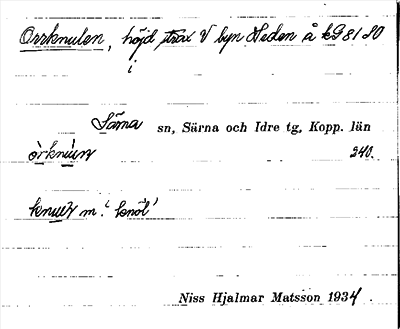 Orrknulen, höjd strax V byn Heden å kG 8180
i
Särna sn, Särna och Idre tg, Kopp. län
òrknùln 240.
knueɽ m. 'knöl'
Niss Hjalmar Matsson 1934.